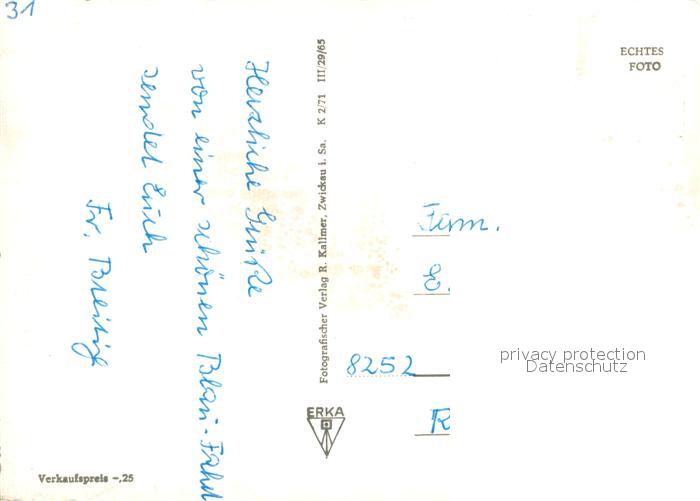 31
Herzliche Grüße
von einer schönen Blau-Fahrt
sendet Euch
Fr.
Fotografischer Verlag R. Kallmer, Zwickau i. Sa. K 2/71 III/29/65
ECHTES
FOTO
Fam.
E.
8252
R
privacy protection
Datenschutz
ERKA
Verkaufspreis -,25